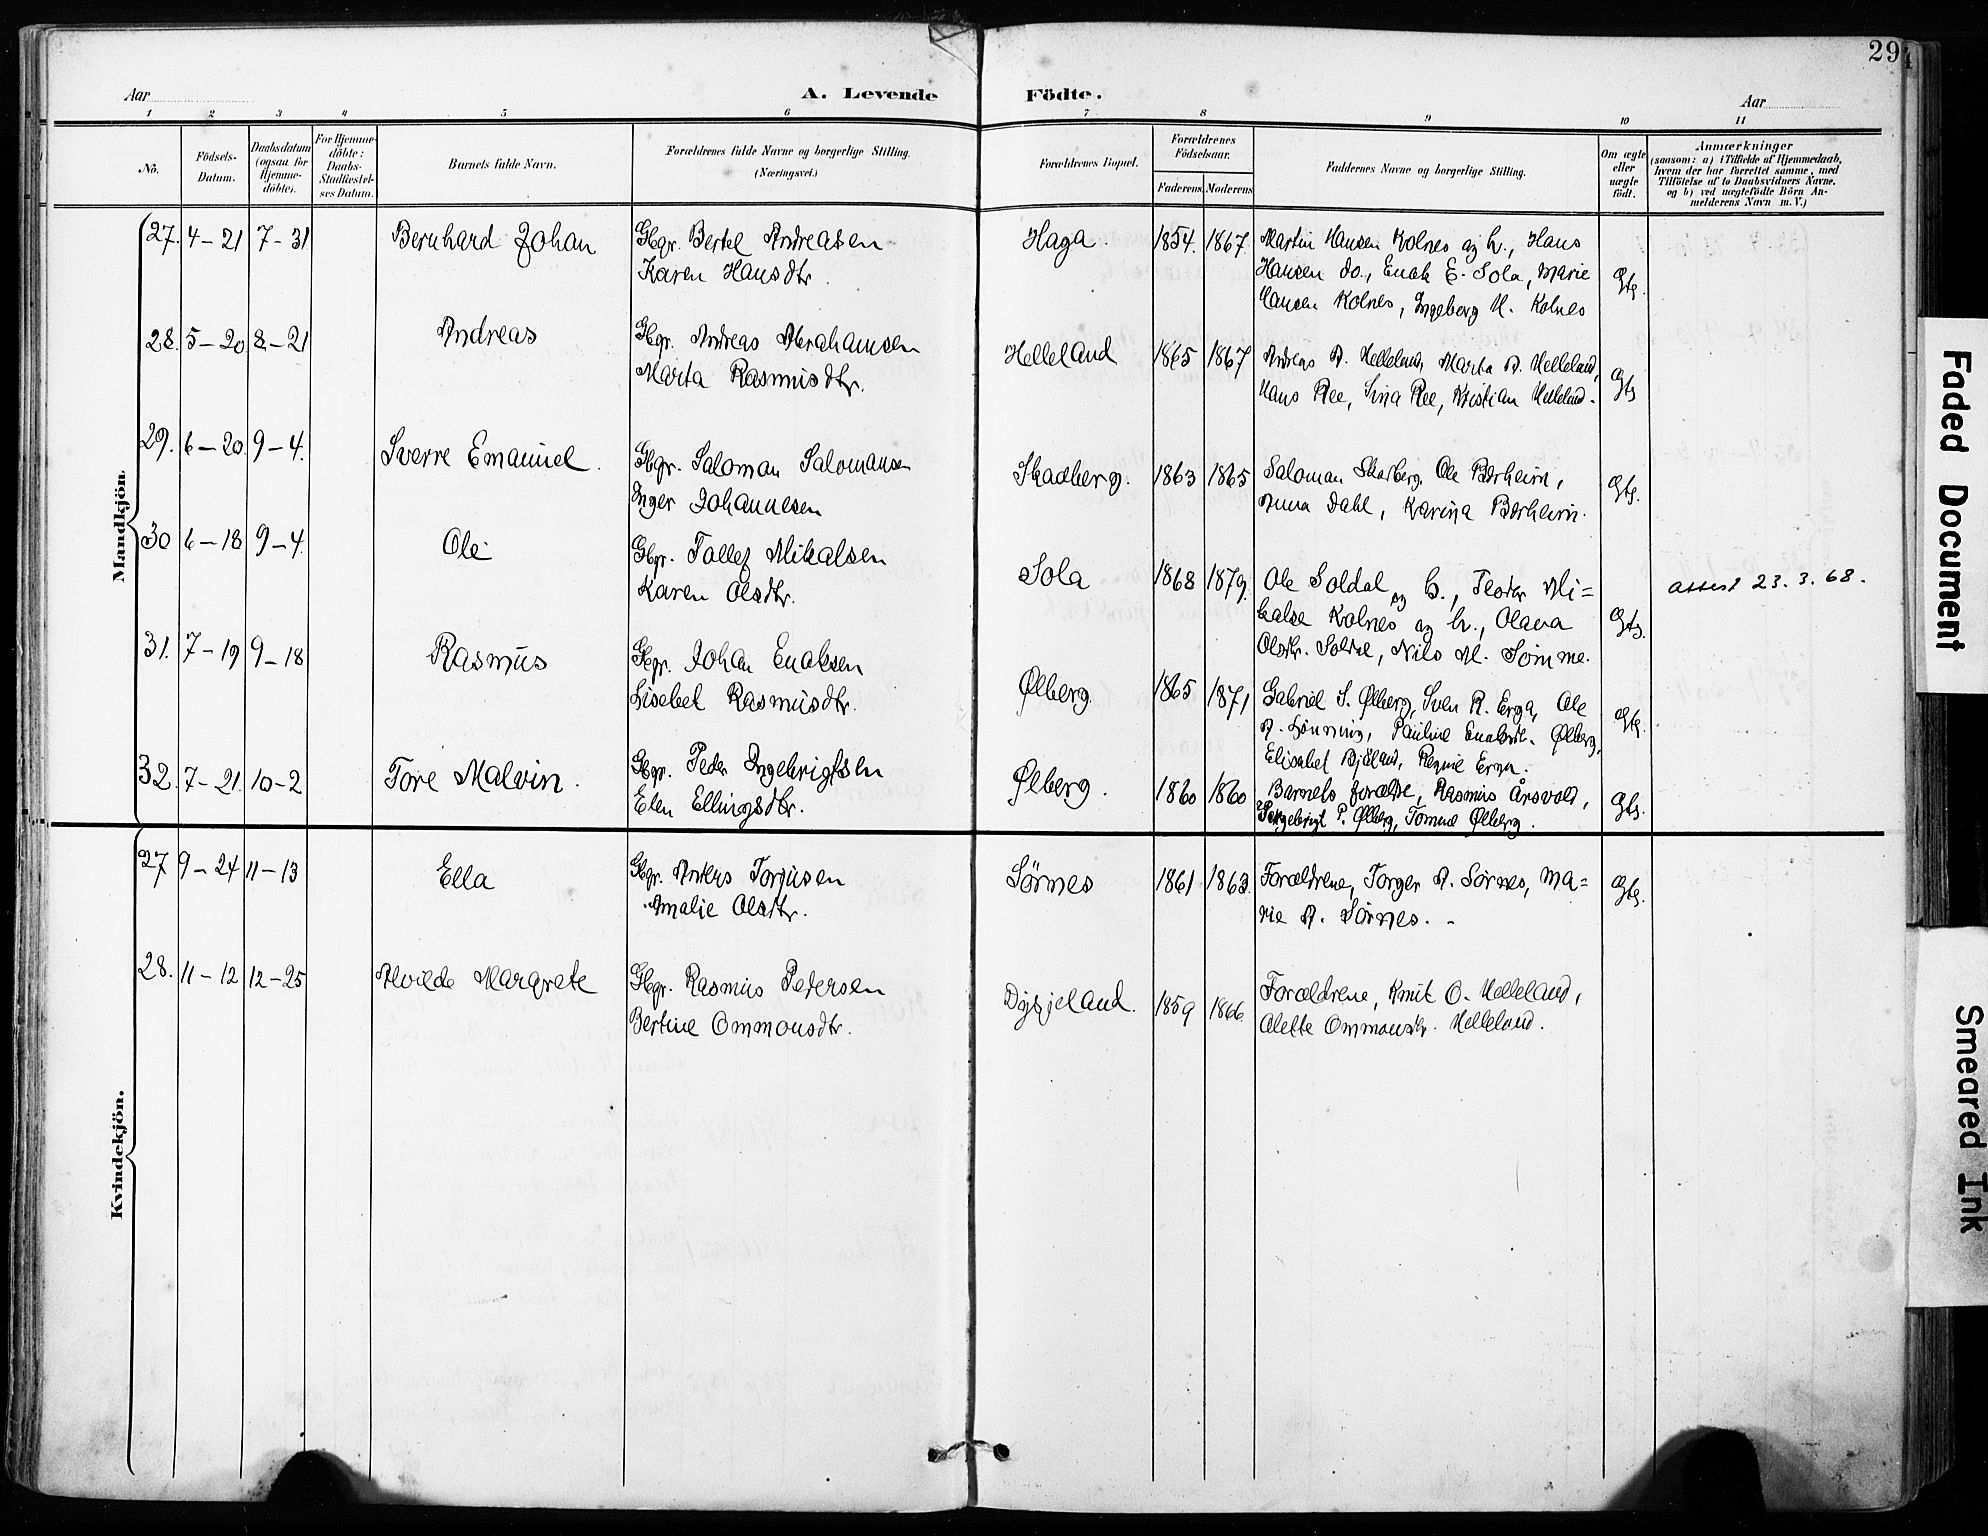 29
A. Levende Födte.
Aar
Aar
1 2 3 4 5 6 7 8 9 10 11
No.
Födsels-
Datum.
Daabsdatum
(ogsaa for
Hjemme-
döbte).
For Hjemme-
döbte:
Daabs-
Stadfæstel-
ses Datum.
Barnets fulde Navn.
Forældrenes fulde Navne og borgerlige Stilling.
(Næringsvei.)
Forældrenes Bopæl.
Forældrenes
Födselsaar.
Faderens Moderens
Faddernes Navne og borgerlige Stilling.
Om ægte
eller
uægte
födt.
Anmærkninger
(saasom: a) i Tilfælde af Hjemmedaab,
hvem der har forrettet samme, med
Tilföielse af to Daabsvidners Navne,
og b) ved uægtefödte Börn An-
melderens Navn m. V.)
Mandkjön.
27. 4-21 7-31 Bernhard Johan
Gbgr. Bertel Andreasen
Karen Hansdtr.
Haga. 1854. 1867.
Martin Hansen Kolnes og h., Hans
Hansen do., Enok E. Sola, Marie
Hansen Kolnes, Ingeborg H. Kolnes
Gte.
28. 5-20 8-21 Andreas
Gbgr. Andreas Abrahamsen
Marta Rasmusdtr.
Helleland 1865 1867
Andreas A. Helleland, Marta A. Helleland,
Hans Ree, Sina Ree, Kristian Helleland.
Gte
29. 6-20. 9-4. Sverre Emanuel.
Gbgr. Saloman Salomansen
Inger Johannesen
Skadberg. 1863 1865
Saloman Skadberg, Ole Børheim,
Anna Dahl, Karina Børheim.
Gte.
30 6-18 9-4. Ole
Gbgr. Mikalsen
Karen Olsdtr.
Sola 1868 1879.
Ole Soldal og h., Teodor Mi=
kalse Kolnes og h., Olava
Olsdtr. Solde, Nils M. Sømme.
Gte.
attest 23.3.68.
31. 7-19 9-18 Rasmus
Gbgr. Johan Enoksen
Lisabet Rasmusdtr.
Ølberg 1865 1871
Gabriel S. Ølberg, Sven R. Erga, Ole
A. Lønning, Pauline Enoksdtr. Ølberg,
Elisabet Bjåland, Regine Erga.
Gte.
32. 7-21. 10-2 Tore Malvin.
Gbgr. Peder Ingebrigtsen
Elen Ellingsdtr.
Ølberg. 1860 1860
Barnets forældre, Rasmus Årsvold,
Ingebrigt P. Ølberg, Tomine Ølberg.
Gte.
Kvindekjön.
27 9-24 11-13 Ella
Gbgr. Anders Torjusen
Amalie Olsdtr.
Sørnes 1861 1863.
Forældrene, Torger A. Sørnes, Ma=
rie A. Sørnes. -
Gte.
28. 11-12 12-25 Alvilde Margrete
Gbgr. Rasmus Pedersen
Bertine Ommonsdtr.
Dysjeland. 1859 1866.
Forældrene, Knut O. Helleland,
Olette Ommonsdtr. Helleland.
Faded Document
Smeared Ink